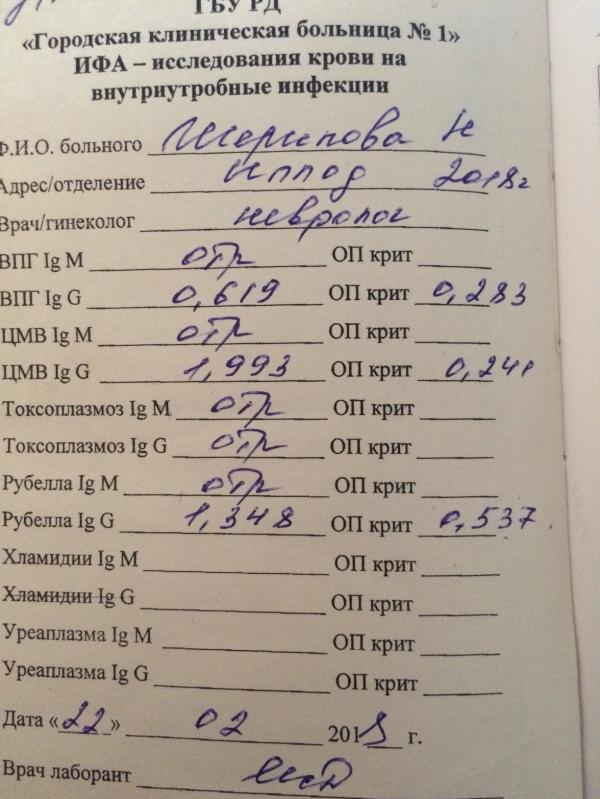 ГБУ РД
«Городская клиническая больница № 1»
ИФА – исследования крови на
внутриутробные инфекции
Ф.И.О. больного Шерипова Н
Адрес/отделение 2018г
Врач/гинеколог невролог
ВПГ Ig M отр ОП крит
ВПГ Ig G 0,619 ОП крит 0,283
ЦМВ Ig M отр ОП крит
ЦМВ Ig G 1,993 ОП крит 0,241
Токсоплазмоз Ig M отр ОП крит
Токсоплазмоз Ig G отр ОП крит
Рубелла Ig M отр ОП крит
Рубелла Ig G 1,348 ОП крит 0,537
Хламидии Ig M ОП крит
Хламидии Ig G ОП крит
Уреаплазма Ig M ОП крит
Уреаплазма Ig G ОП крит
Дата «22» 02 2018 г.
Врач лаборант